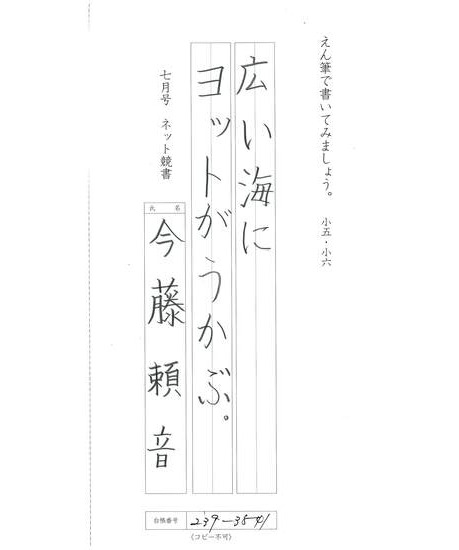 えん筆で書いてみましょう。 小五・小六
広い海に
ヨットがうかぶ。
七月号 ネット競書
氏名
今藤頼音
台帳番号 239-3541
《コピー不可》